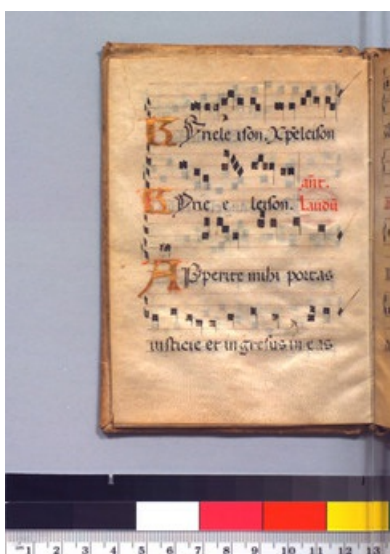 Kyriele ison. Xpeleison
Kyrie e leison. añt.
Laudū
APperite mihi portas
iusticie et ingresus in eas
1 2 3 4 5 6 7 8 9 10 11 12 13